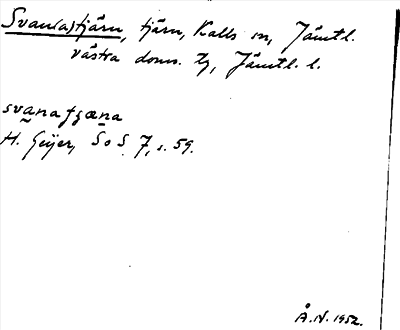 Svan(a)tjärn, tjärn, Kalls sn, Jämtl.
västra doms. tg, Jämtl. l.
svanaƒgæna
H. Geijer, SoS 7, s. 59.
Å.N. 1952.